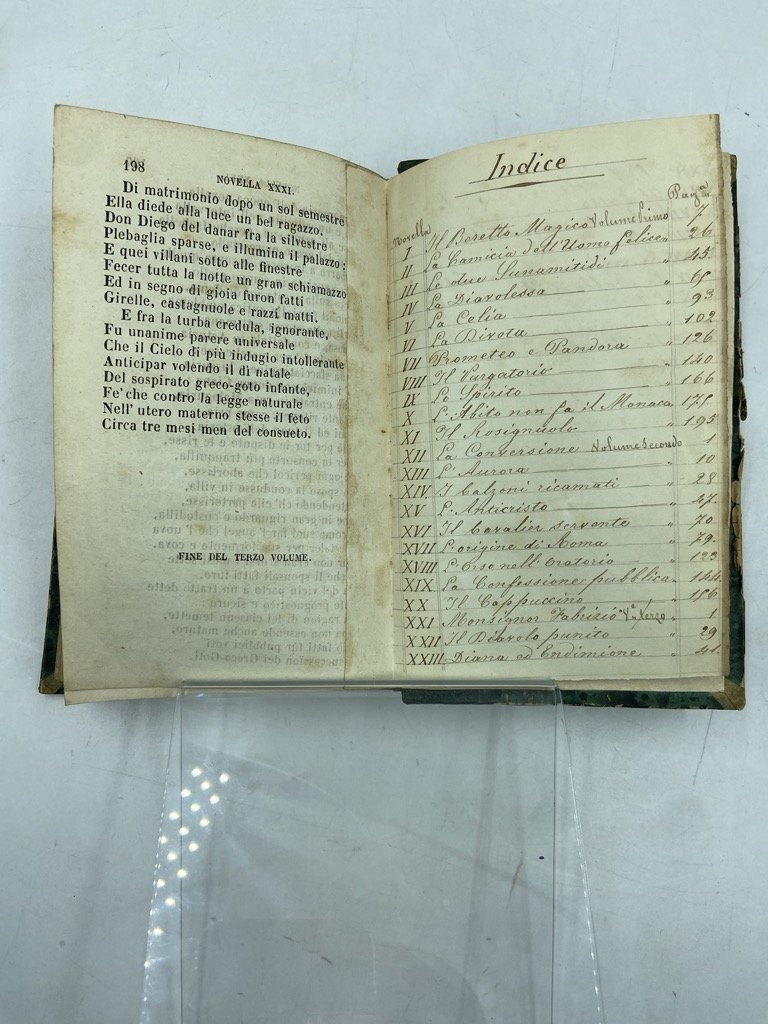 198
NOVELLA XXXI.
Di matrimonio dopo un sol semestre
Ella diede alla luce un bel ragazzo.
Don Diego del danar fra la silvestre
Plebaglia sparse, e illumina il palazzo:
E quei villani sotto alle finestre
Fecer tutta la notte un gran schiamazzo
Ed in segno di gioia furon fatti
Girelle, castagnuole e razzi matti.
E fra la turba credula, ignorante,
Fu unanime parere universale
Che il Cielo di più indugio intollerante
Anticipar volendo il dì natale
Del sospirato greco-goto infante,
Fe' che contro la legge naturale
Nell' utero materno stesse il feto
Circa tre mesi men del consueto.
FINE DEL TERZO VOLUME.
Indice
Novella Pag.a
I Il Beretto Magico Volume Primo 7
II La Camicia dell'Uomo felice " 26
III Le due Sunamitidi " 45
IV La Diavolessa " 65
V La Celia " 93
VI La Divota " 102
VII Prometeo e Pandora " 126
VIII Il Purgatorio " 140
IX Lo Spirito " 166
X L'Abito non fa il Monaco 175
XI Il Rosignuolo " 195
XII La Conversione Volume Secondo 1
XIII L'Aurora " 10
XIV I Calzoni ricamati " 28
XV L'Anticristo " 47
XVI Il Cavalier servente " 70
XVII L'origine di Roma " 79
XVIII L'Orso nell'Oratorio " 123
XIX La Confessione pubblica " 144
XX Il Cappuccino " 156
XXI Monsignor Fabrizio V.e terzo " 1
XXII Il Diavolo punito " 29
XXIII Diana ed Endimione " 41